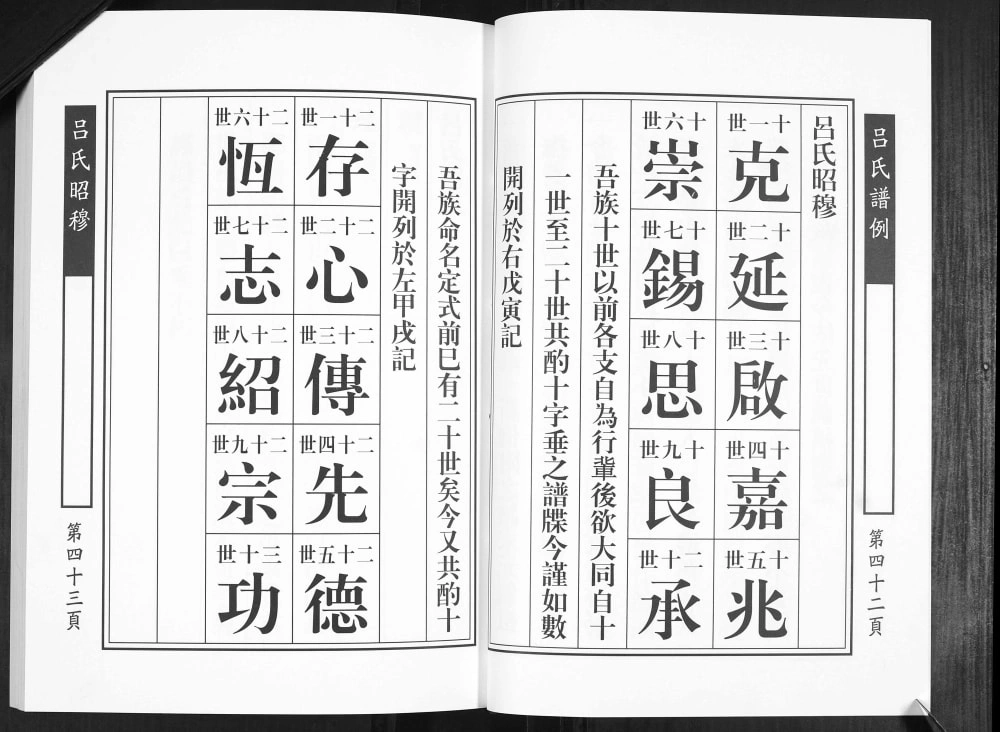 呂氏譜例
第四十二頁
呂氏昭穆
十一世
克
十二世
延
十三世
啟
十四世
嘉
十五世
兆
十六世
崇
十七世
錫
十八世
思
十九世
良
二十世
承
吾族十世以前各支自為行輩後欲大同自十
一世至二十世共酌十字垂之譜牒今謹如數
開列於右戊寅記
吾族命名定式前已有二十世矣今又共酌十
字開列於左甲戌記
二十一世
存
二十二世
心
二十三世
傳
二十四世
先
二十五世
德
二十六世
恆
二十七世
志
二十八世
紹
二十九世
宗
三十世
功
呂氏昭穆
第四十三頁